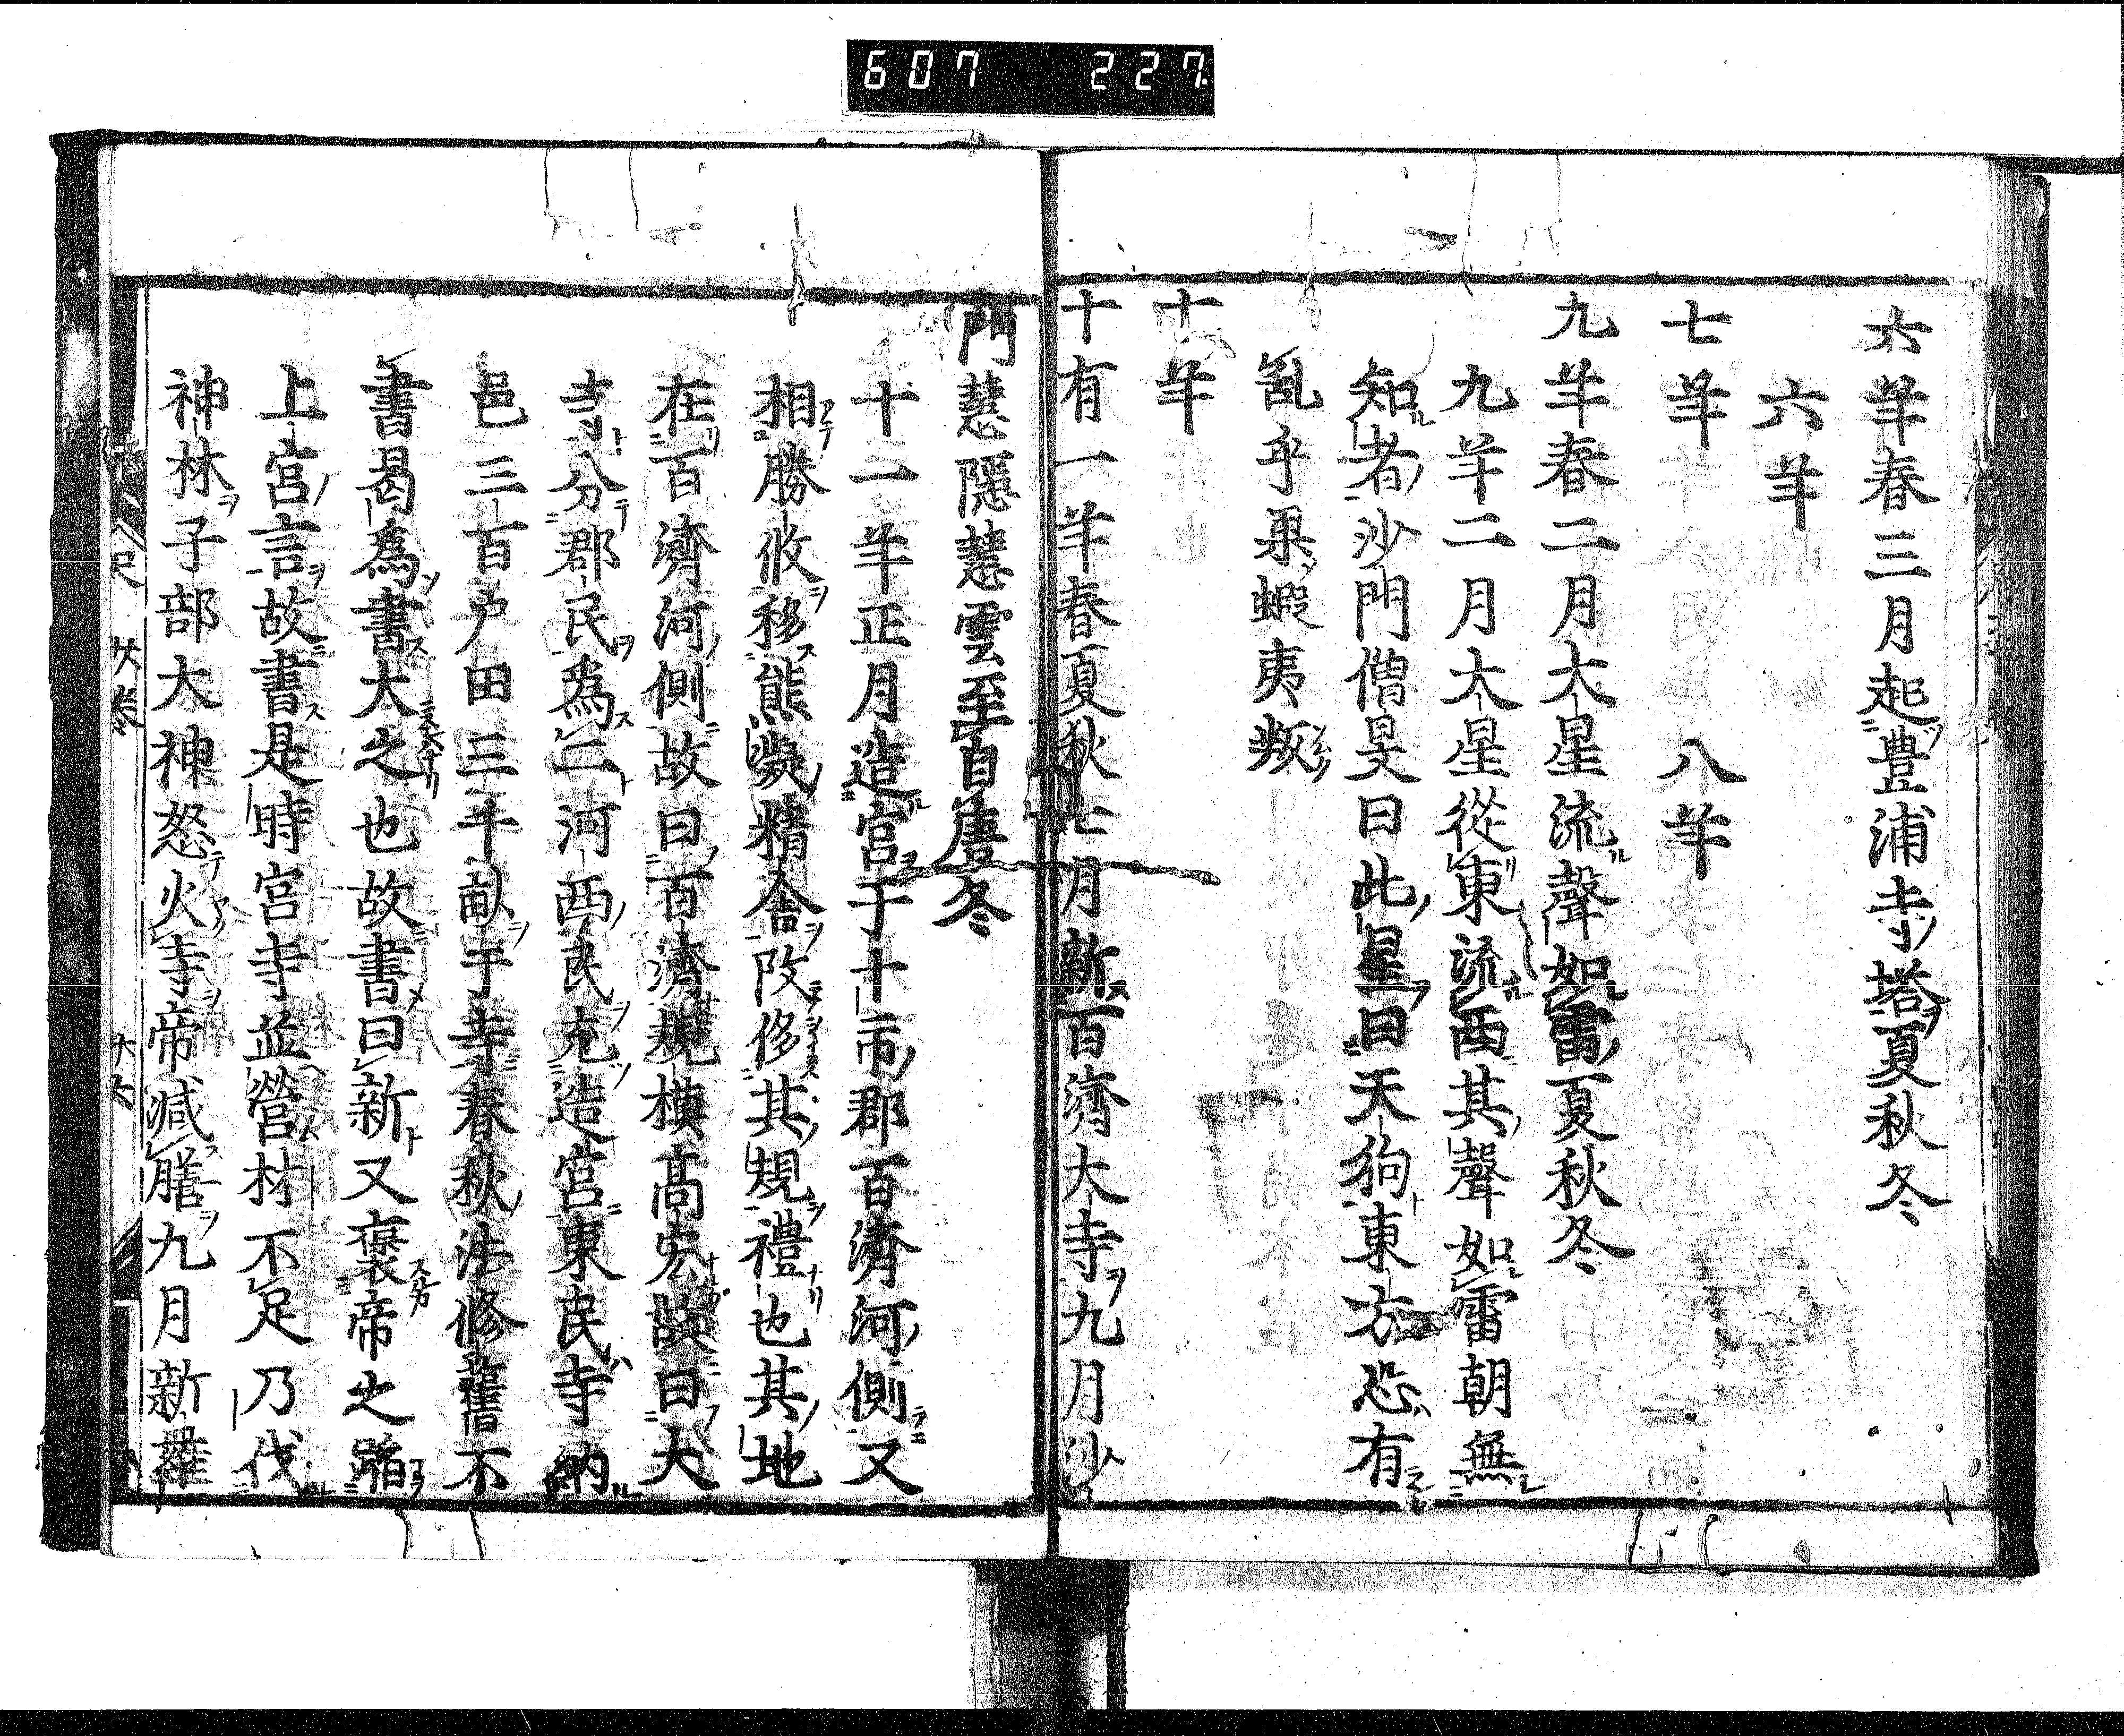 607 227
六年春三月起豊浦寺塔夏秋冬
六年
七年 八年
九年春二月大星流聲如雷夏秋冬
九年二月大星從東流西其聲如雷朝無
知者沙門僧旻曰此星曰天狗東方恐有
乱乎果蝦夷叛
十年
十有一年春夏秋七月新百濟大寺九月沙
門慧隱慧雲至自唐冬
十一年正月造宮于十市郡百濟河側又
相勝攸移熊凝精舎改修其規禮也其地
在百濟河側故曰百濟規模高宏故曰大
寺分郡民為二河西民充造宮東民寺納
邑三百戸田三年献于寺春秋法修舊不
書曷為書大之也故書曰新又褒帝之蹈
上宮言故書是時宮寺並營材不足乃伐
神林子部大神怒火寺帝减膳九月新羅